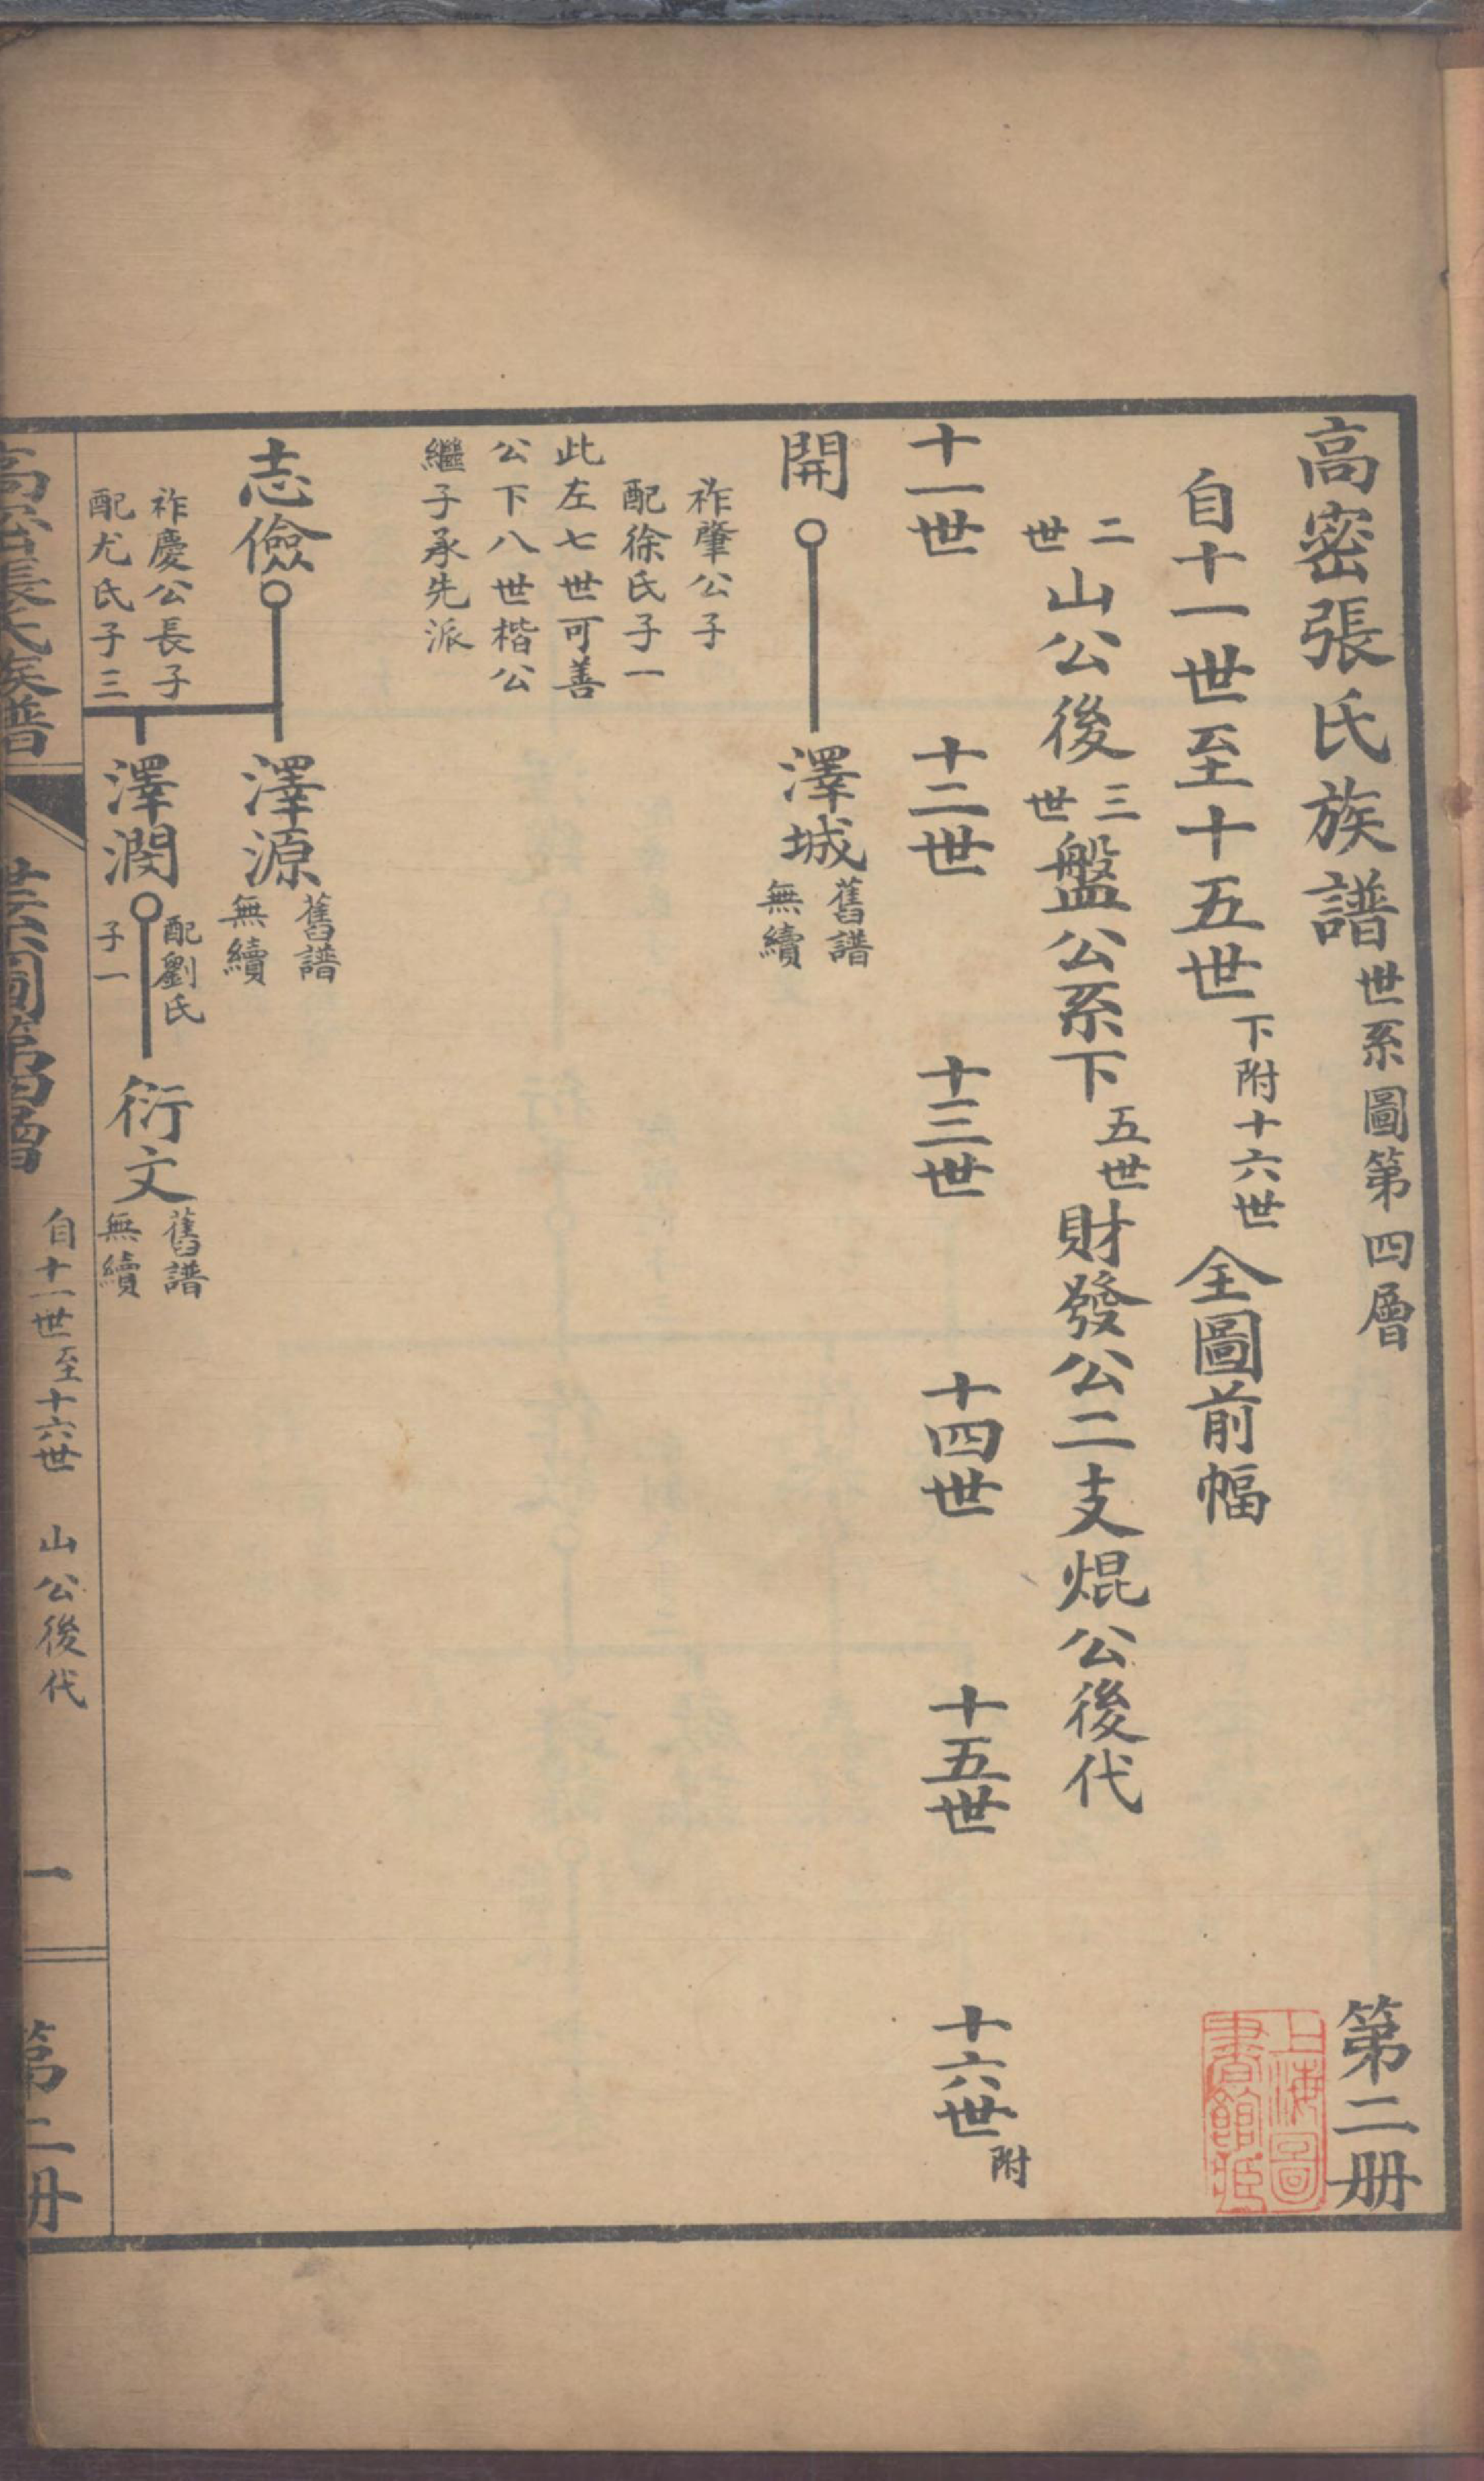 高密張氏族譜世系圖第四層 第二册
自十一世至十五世下附十六世全圖前幅
上海圖書館藏
二世山公後三世盤公系下五世財發公二支焜公後代
十一世 十二世 十三世 十四世 十五世 十六世附
開 澤城 舊譜無續
祚肇公子
配徐氏子一
此左七世可善
公下八世楷公
繼子承先派
志儉 澤源 舊譜無續
祚慶公長子
配尤氏子三
澤潤 配劉氏子一 衍文 舊譜無續
高密張氏族譜 世系圖第四層 自十一世至十六世 山公後代 一 第二册